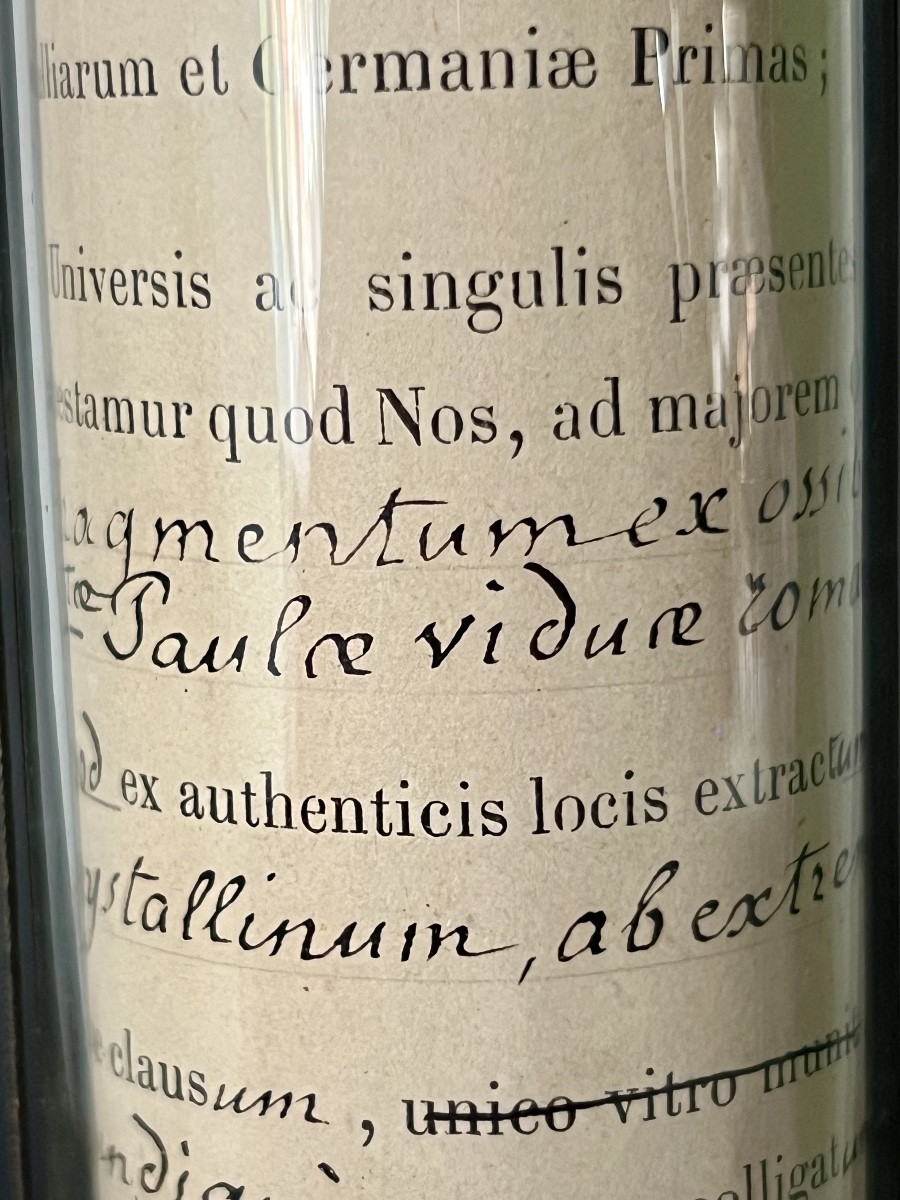 lliarum et Germaniæ Primas;
Universis ac singulis præsentes
estamur quod Nos, ad majorem
agmentum ex ossib
tæ Paulæ viduæ roma
ad ex authenticis locis extractum
ystallinum, ab extre
clausum, unico vitro munit
ndiquè olligatu